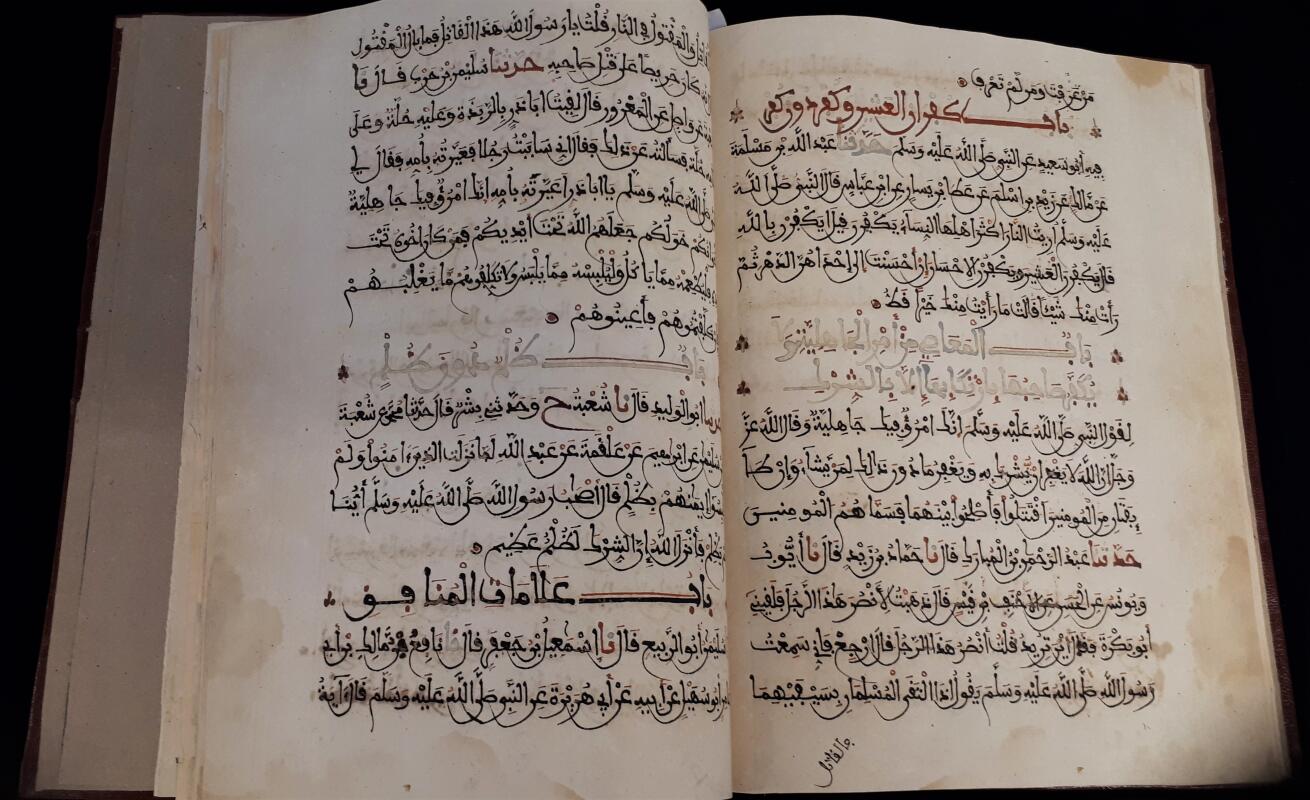 مَن عَرَفْتَ وَمَن لَّمْ تَعْرِف
باب كفران العشير وكفر دون كفر
فيه أبو سعيد عن النبي صلى الله عليه وسلم حدثنا عبد الله بن مسلمة
عن مالك عن زيد بن اسلم عن عطا بن يسار عن ابن عباس قال النبي صلى الله
عليه وسلم أريت النار اكثر اهلها النساء يكفرن قيل أيكفرن بالله
قال يكفرن العشير ويكفرن الاحسان إن أحسنت الى إحداهن الدهر ثم
رأت منك شيئا قالت ما رأيت منك خيرا قط
باب المعاصي من أمر الجاهلية ولا
يكفر صاحبها بارتكابها إلا بالشرك
لقول النبي صلى الله عليه وسلم انك امرؤ فيك جاهلية وقال الله عز
وجل ان الله لا يغفر ان يشرك به ويغفر ما دون ذلك لمن يشاء وإن طا
يفتان من المومنين اقتتلوا فأصلحوا بينهما فسماهم المومنين
حدثنا عبد الرحمن بن المبارك قال نا حماد بن زيد قال نا أيوب
ويونس عن الحسن عن الاحنف بن قيس قال ذهبت لأنصر هذا الرجل فلقيني
أبو بكرة فقال اين تريد قلت أنصر هذا الرجل قال ارجع فاني سمعت
رسول الله صلى الله عليه وسلم يقول اذا التقى المسلمان بسيفيهما
فالقاتل
والمقتول في النار قلت يا رسول الله هذا القاتل فما بال المقتول
كان حريصا على قتل صاحبه حدثنا سليمن بن حرب قال نا
واصل عن المعرور قال لقيت ابا ذر بالربذة وعليه حلة وعلى
حلة فسألته عن ذلك فقال اني ساببت رجلا فعيرته بأمه فقال لي
صلى الله عليه وسلم يا ابا ذر اعيرته بأمه انك امرؤ فيك جاهلية
خولكم جعلهم الله تحت أيديكم فمن كان اخوه تحت
فليطعمه مما ياكل وليلبسه مما يلبس ولا تكلفوهم ما يغلبهم
كلفتموهم فأعينوهم
باب ظلم دون ظلم
ابو الوليد قال نا شعبة ح وحدثني بشر قال حدثنا محمد عن شعبة
سليمن عن ابراهيم عن علقمة عن عبد الله لما نزلت الذين ءامنوا ولم
يلبسوا إيمانهم بظلم قال أصحاب رسول الله صلى الله عليه وسلم أينا
يظلم فأنزل الله إن الشرك لظلم عظيم
باب علامات المنافق
سليمن أبو الربيع قال نا اسمعيل بن جعفر قال نا نافع بن مالك بن أبي
أبو سهيل عن ابيه عن أبي هريرة عن النبي صلى الله عليه وسلم قال ءاية